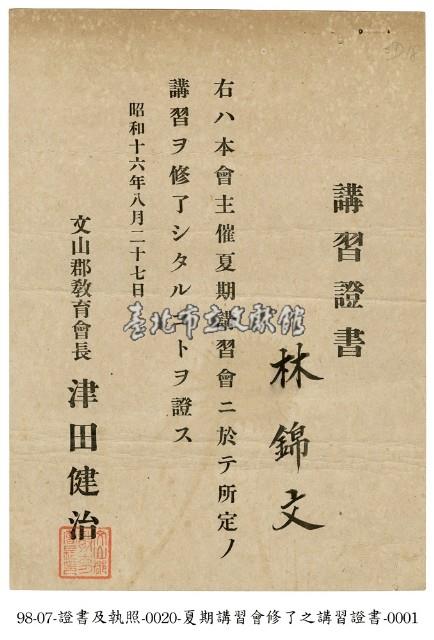 講習證書
林錦文
右ハ本會主催夏期講習會ニ於テ所定ノ
講習ヲ修了シタルコトヲ證ス
昭和十六年八月二十七日
文山郡教育會長 津田健治
臺北市立文獻館
98-07-證書及執照-0020-夏期講習會修了之講習證書-0001